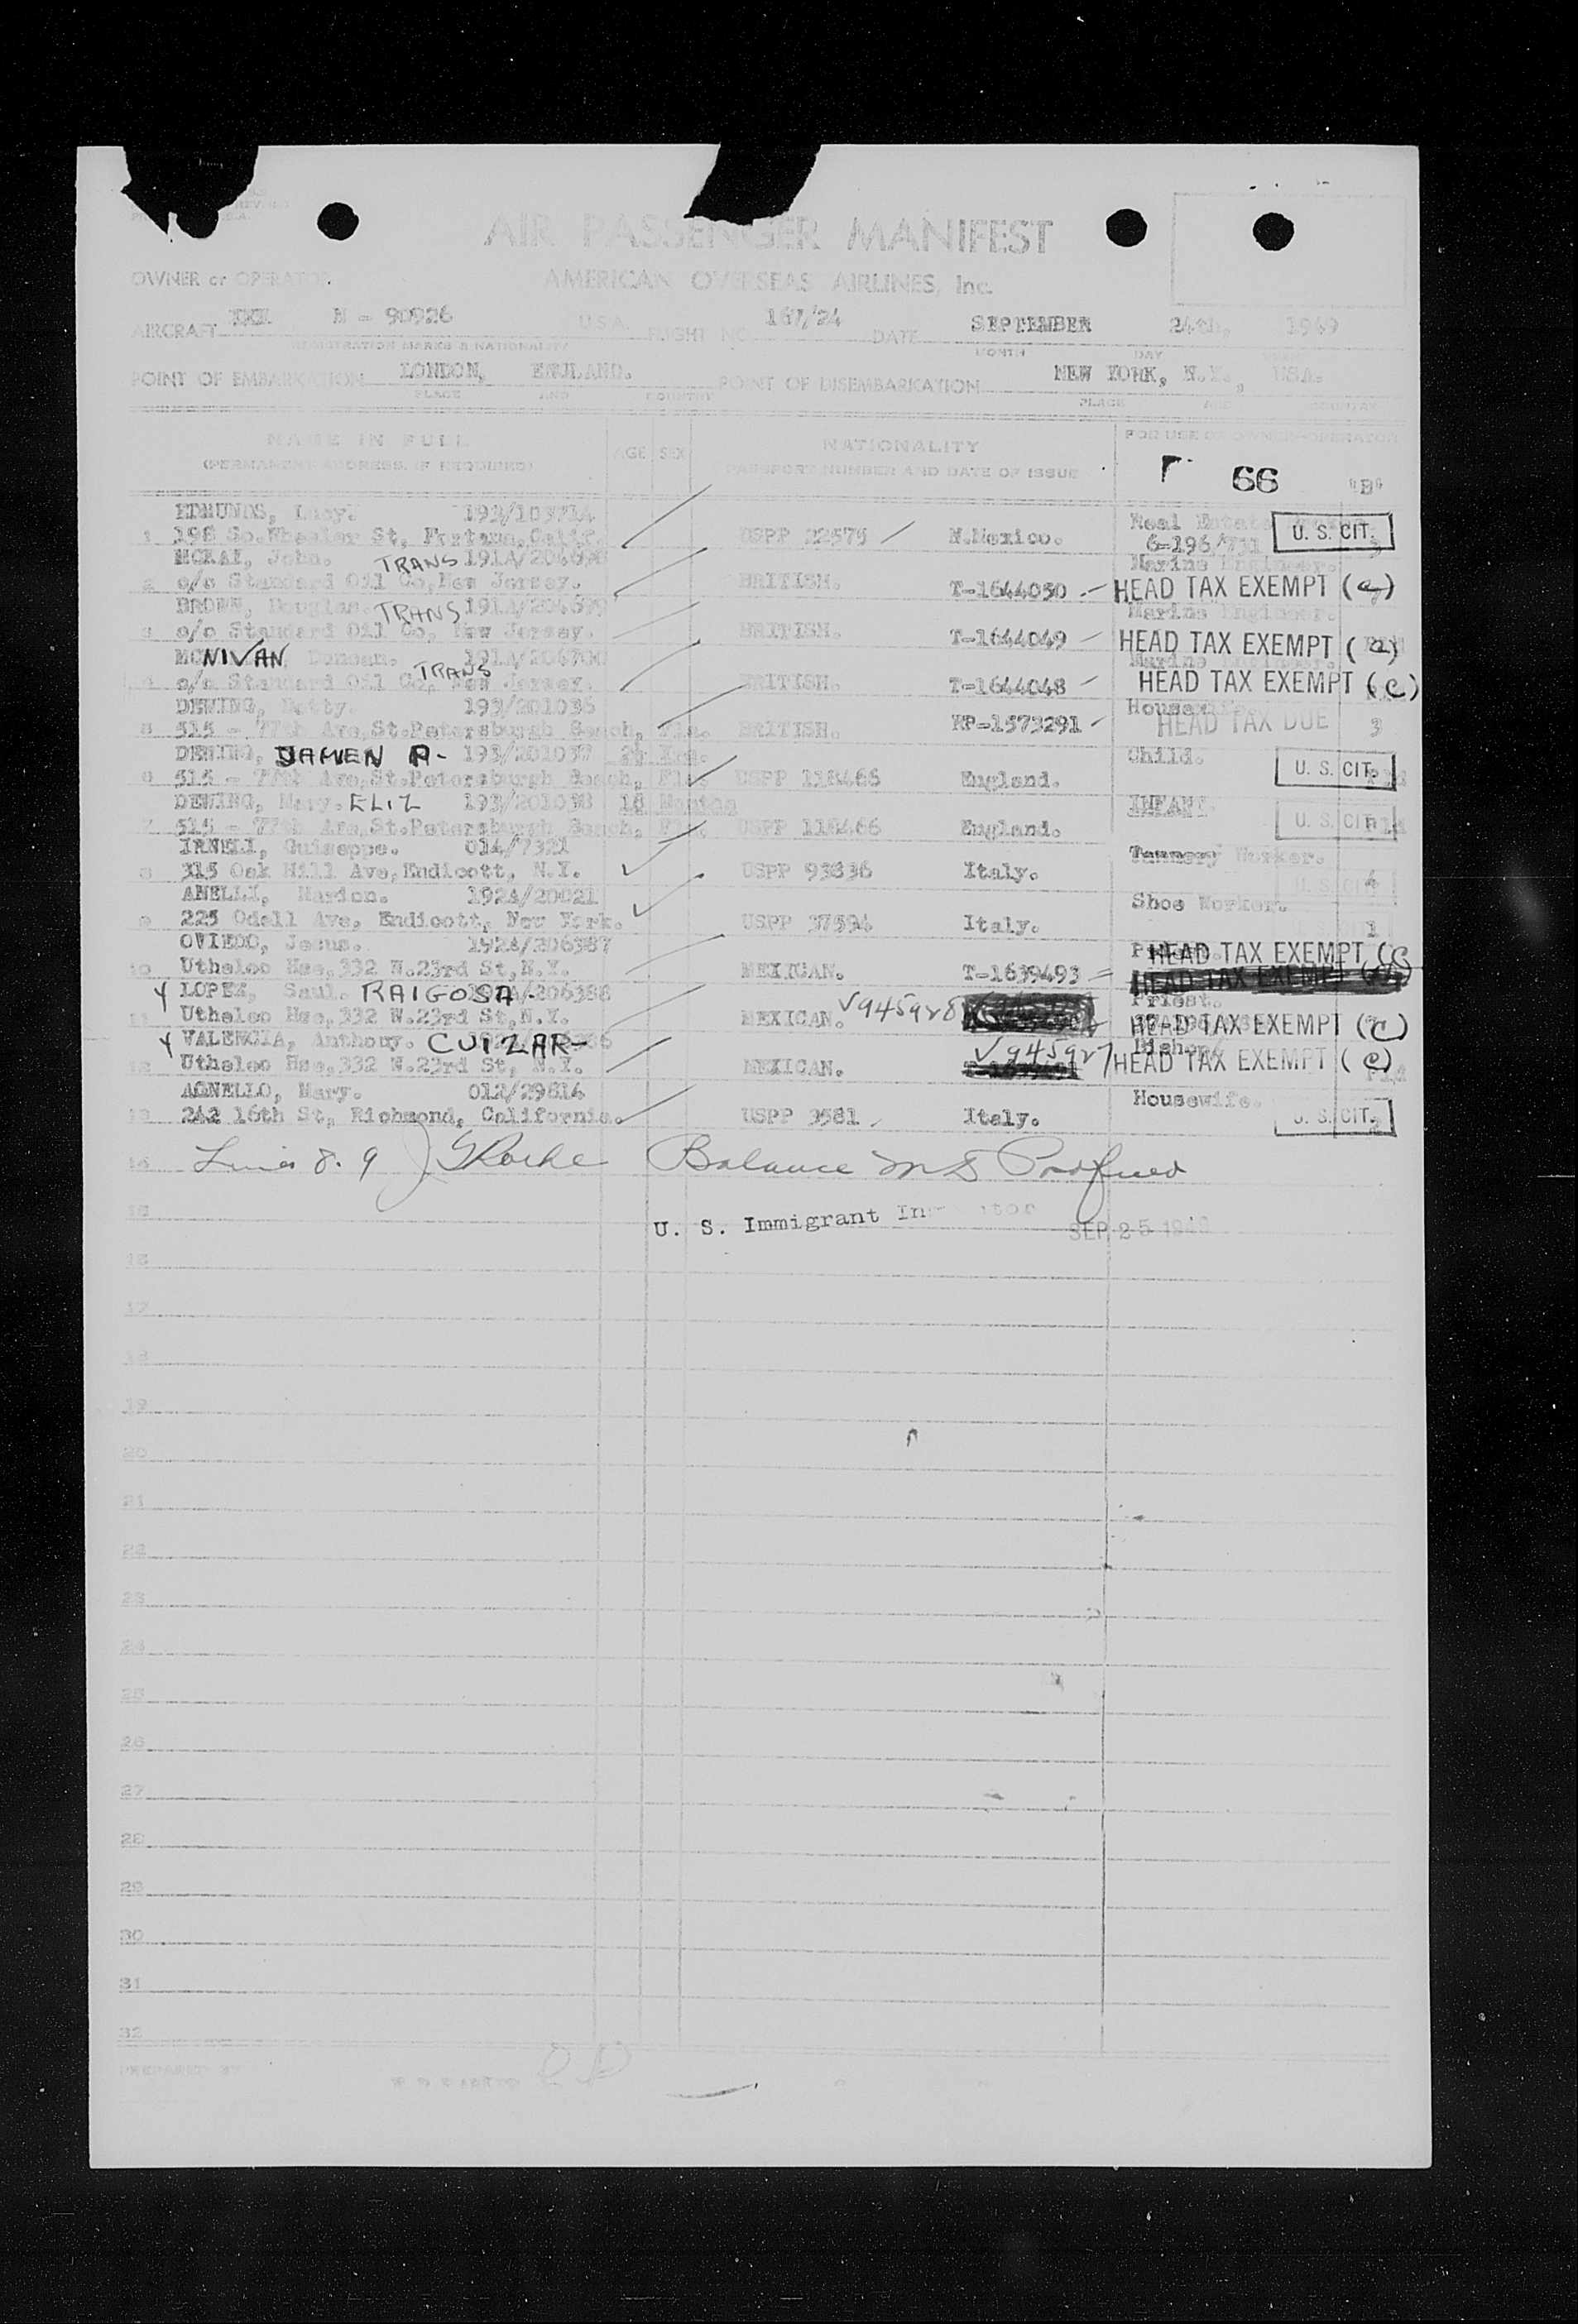 AIR PASSENGER MANIFEST
OWNER or OPERATOR AMERICAN OVERSEAS AIRLINES, Inc.
AIRCRAFT N - 90926 U.S.A. FLIGHT NO. 167/24 DATE SEPTEMBER 24th, 1949
REGISTRATION MARKS & NATIONALITY MONTH DAY
POINT OF EMBARKATION LONDON, ENGLAND. POINT OF DISEMBARKATION NEW YORK, N.Y., USA.
PLACE AND COUNTRY PLACE AND COUNTRY
NAME IN FULL AGE SEX NATIONALITY FOR USE OF OWNER/OPERATOR
(PERMANENT ADDRESS, IF REQUIRED) PASSPORT NUMBER AND DATE OF ISSUE
66 "B"
EDMUNDS, Lucy. 193/103714 Real Estate
1 198 So. Wheeler St, Fontana, Calif. USPP 22575 N.Mexico. 6-196/731 U. S. CIT.
MCKAI, John. TRANS 191A/204698 Marine Engineer.
2 c/o Standard Oil Co, New Jersey. BRITISH. T-1644050 HEAD TAX EXEMPT (a)
BROWN, Douglas. TRANS 191A/204699 Marine Engineer.
3 c/o Standard Oil Co, New Jersey. BRITISH. T-1644049 HEAD TAX EXEMPT (a)
NIVAN Duncan. TRANS 191A/204700 Marine Engineer.
4 c/o Standard Oil Co, New Jersey. BRITISH. T-1644048 HEAD TAX EXEMPT (c)
DEWING, Betty. 193/201036 Housewife.
5 515 - 77th Ave, St.Petersburgh Beach, Fla. BRITISH. RP-1573291 HEAD TAX DUE 3
DEWING, 193/201037 2½ Yrs. Child.
6 515 - 77th Ave, St.Petersburgh Beach, Fla. USPP 118466 England. U. S. CIT.
DEWING, Mary. ELIZ 193/201038 18 Months INFANT.
7 515 - 77th Ave, St.Petersburgh Beach, Fla. USPP 118466 England. U. S. CIT.
IANELI, Guiseppe. 014/7321 Tannery Worker.
8 315 Oak Hill Ave, Endicott, N.Y. USPP 93836 Italy. U. S. CIT. 4
ANELLI, Marion. 192A/20021 Shoe Worker.
9 225 Odell Ave, Endicott, New York. USPP 37594 Italy. 1
OVIEDO, Jesus. 192A/206387 HEAD TAX EXEMPT (c)
10 Uthaloo Hse, 332 W.23rd St, N.Y. MEXICAN. T-1639493 HEAD TAX EXEMPT
LOPEZ, Saul. RAIGOSA- /206388 Priest.
11 Uthaloo Hse, 332 W.23rd St, N.Y. MEXICAN. V945928 HEAD TAX EXEMPT (c)
VALENCIA, Anthony. CUIZAR- Bishop
12 Uthaloo Hse, 332 W.23rd St, N.Y. MEXICAN. V945927 HEAD TAX EXEMPT (c)
AGNELLO, Mary. 012/29814 Housewife.
13 242 16th St, Richmond, California. USPP 3581 Italy. U. S. CIT.
14 Lines 8. 9 Balance
15 U. S. Immigrant Inspector SEP 25 1949
16
17
18
19
20
21
22
23
24
25
26
27
28
29
30
31
32
PREPARED BY